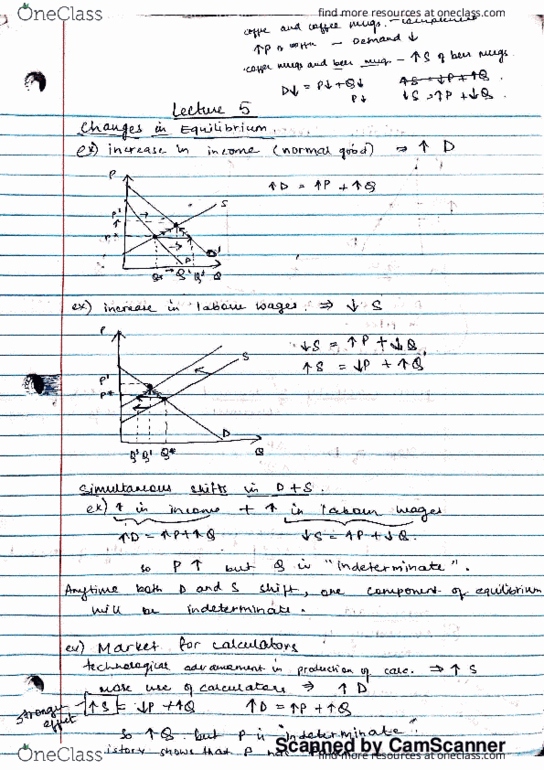 OneClass
find more resources at oneclass.com
coffee and coffee mugs - complements
↑P of coffee - Demand ↓
coffee mugs and beer mugs - ↑S of beer mugs
D↓ = P↓ + Q↓
↑S = ↓P + ↑Q
P↓
↓S = ↑P + ↓Q
Lecture 5
Changes in Equilibrium
ex) increase in income (normal good) ⇒ ↑ D
P
↑D = ↑P + ↑Q
S
P'
P*
D'
D
Q* → Q' Q
ex) increase in labour wages ⇒ ↓ S
P
↓S = ↑P + ↓Q
S
↑S = ↓P + ↑Q
P'
P*
D
Q' Q* Q
Simultaneous shifts in D + S.
ex) ↑ in income + ↑ in labour wages
↑D = ↑P + ↑Q ↓S = ↑P + ↓Q
so P ↑ but Q is "indeterminate".
Anytime both D and S shift, one component of equilibrium
will be indeterminate.
ex) Market for calculators
technological advancement in production of calc. ⇒ ↑ S
more use of calculators ⇒ ↑ D
stronger effect
↑S = ↓P + ↑Q ↑D = ↑P + ↑Q
So ↑Q but P is "indeterminate"
history shows that P has
Scanned by CamScanner
OneClass
find more resources at oneclass.com